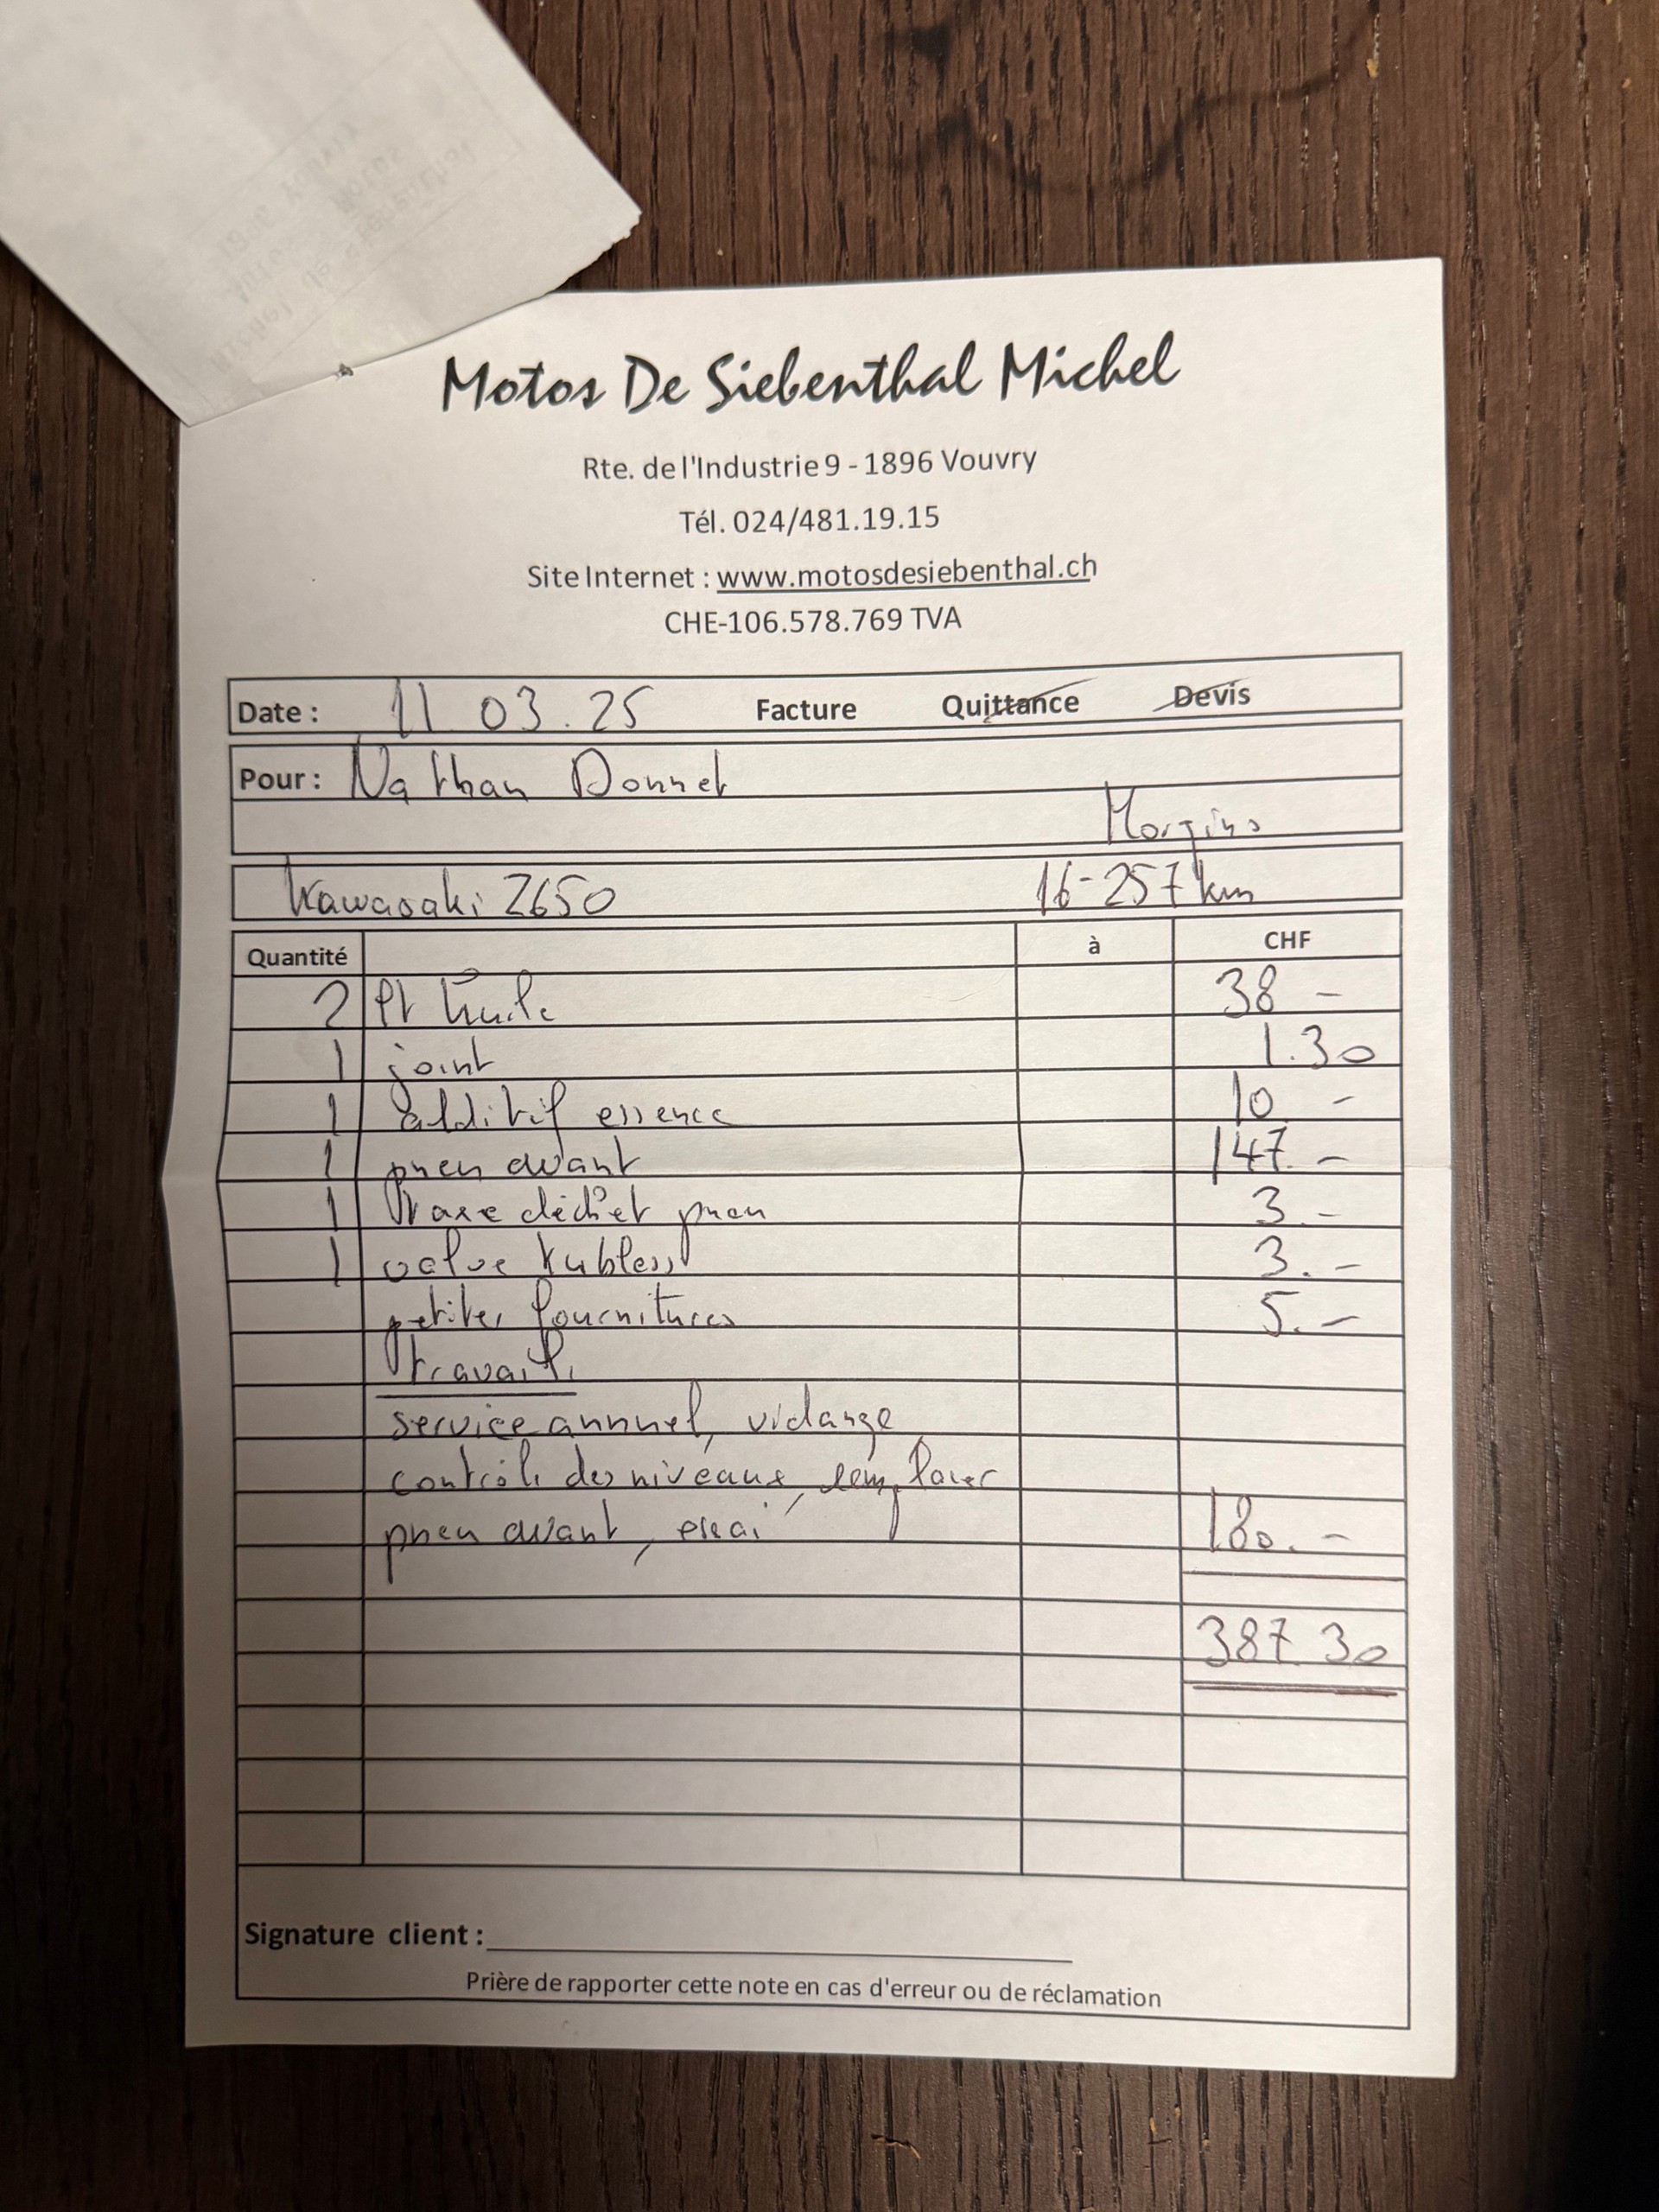 Motos De Siebenthal Michel
Rte. de l'Industrie 9 - 1896 Vouvry
Tél. 024/481.19.15
Site Internet : www.motosdesiebenthal.ch
CHE-106.578.769 TVA
Date : 11.03.25 Facture Quittance Devis
Pour : Nathan Donnet
Morgins
Kawasaki Z650 16-257 km
Quantité à CHF
2 lt huile 38 -
1 joint 1.30
1 additif essence 10 -
1 pneu avant 147.-
1 taxe déchet pneu 3.-
1 valve tubless 3.-
petites fournitures 5.-
travail
service annuel, vidange
contrôle des niveaux, remplacer
pneu avant, essai 180.-
387.30
Signature client :
Prière de rapporter cette note en cas d'erreur ou de réclamation